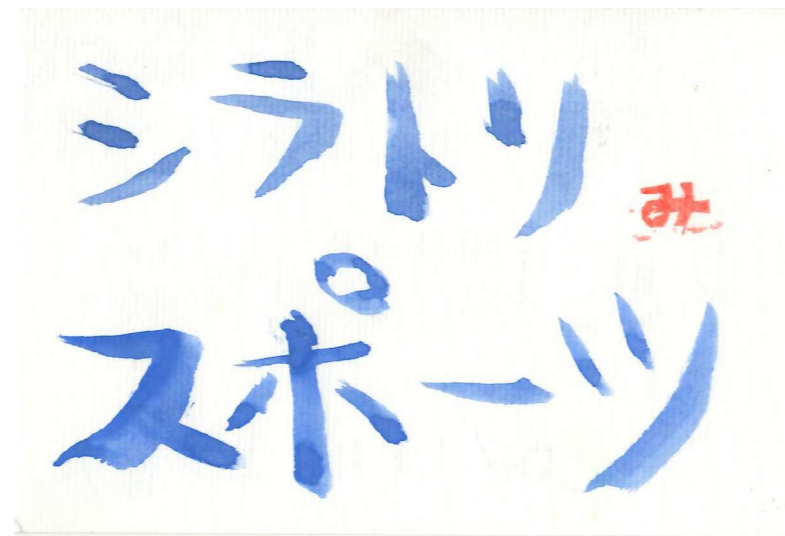 シラトリ
み
スポーツ